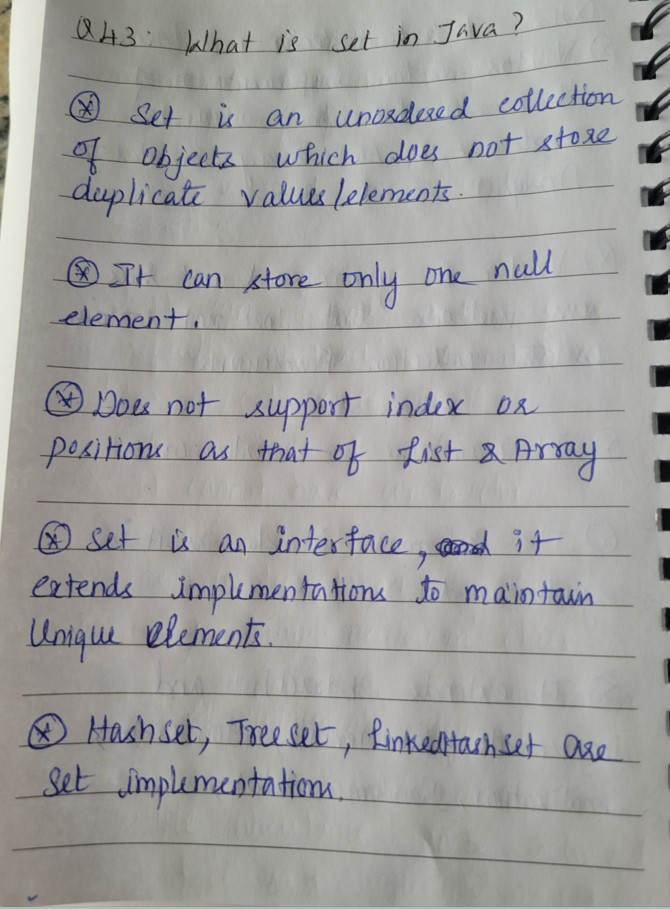 Q43: What is set in Java?
⊛ Set is an unordered collection
of objects which does not store
duplicate values/elements.
⊛ It can store only one null
element.
⊛ Does not support index or
positions as that of List & Array
⊛ Set is an interface, it
extends implementations to maintain
Unique elements.
⊛ Hashset, Treeset, LinkedHashset are
set implementations.